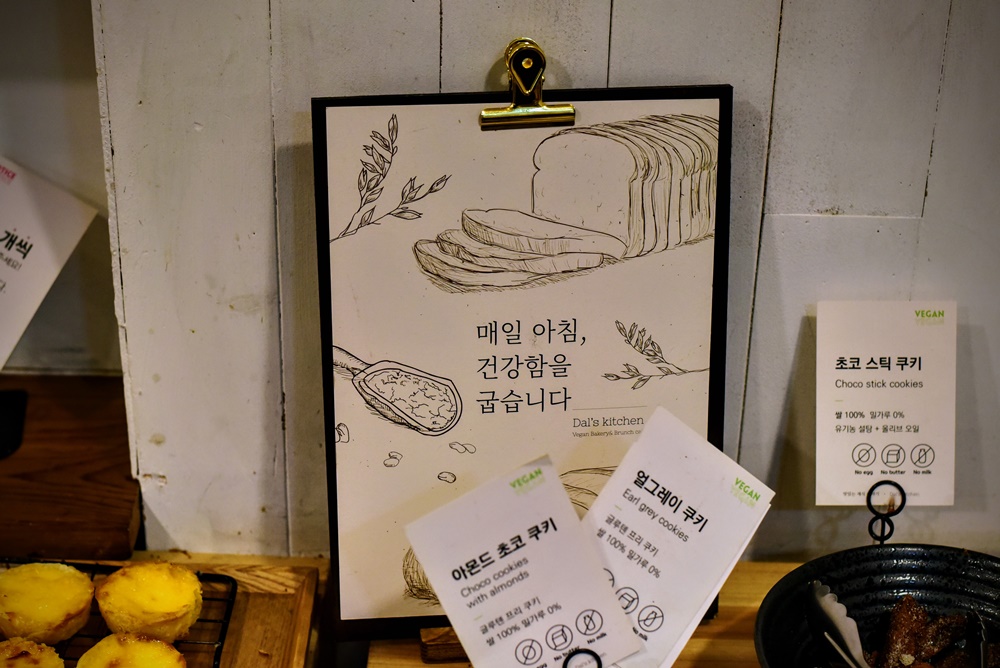 개씩
매일 아침,
건강함을
굽습니다
Dal's kitchen
Vegan Bakery& Brunch
VEGAN
아몬드 초코 쿠키
Choco cookies
with almonds
글루텐 프리 쿠키
쌀 100% 밀가루 0%
No milk
VEGAN
얼그레이 쿠키
Earl grey cookies
글루텐 프리 쿠키
쌀 100% 밀가루 0%
No milk
VEGAN
초코 스틱 쿠키
Choco stick cookies
쌀 100% 밀가루 0%
유기농 설탕 + 올리브 오일
No egg No butter No milk